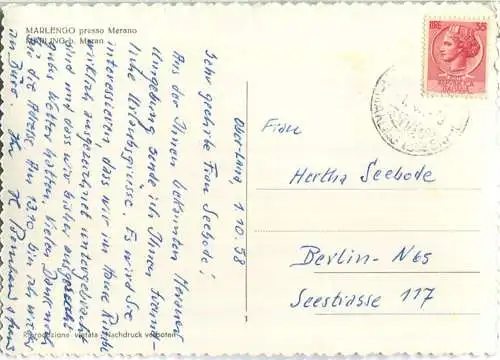 MARLENGO presso Merano
MARLING b. Meran
LIRE 35
Ober-Lana, 1.10.58
Sehr geehrte Frau Seebode!
Aus der Ihnen bekannten Meraner
Umgebung sende ich Ihnen freund-
liche Urlaubsgrüsse. Es wird Sie
interessieren, daß wir im Hause
wirklich ausgezeichnet untergebracht
sind und daß wir bisher ausgesucht
gutes Wetter hatten. Vielen Dank noch
für die Adresse. Am 13.10. bin ich wieder
im Büro. Ihr
Frau
Hertha Seebode
Berlin-N65
Seestrasse 117
Riproduzione vietata - Nachdruck verboten